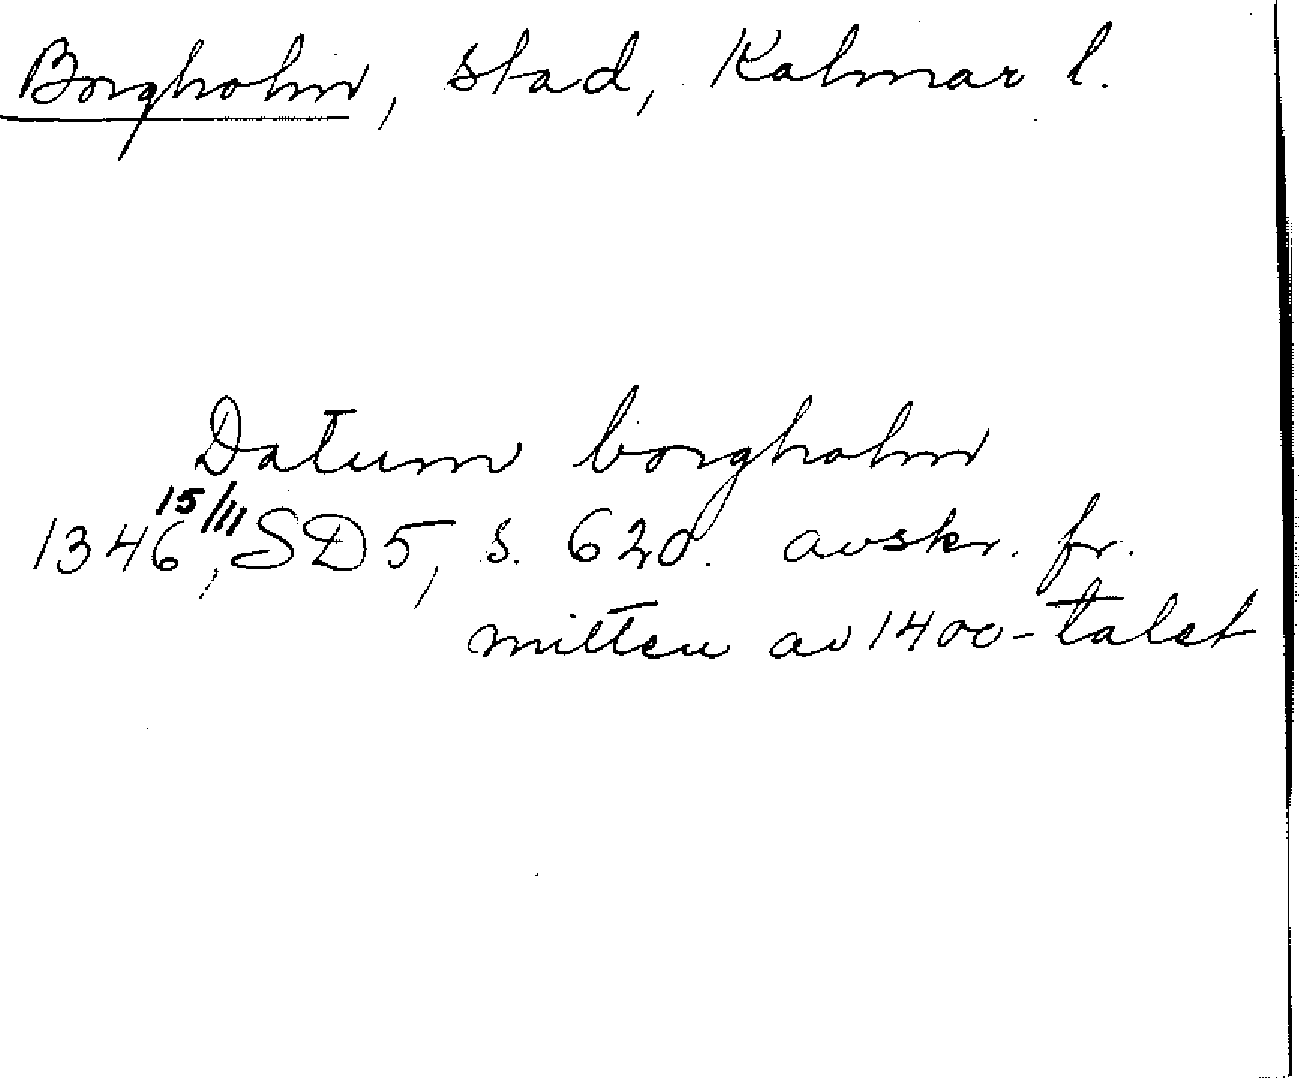 Borgholm, stad, Kalmar l.
Datum borgholm
1346 15/III, SD5, s. 620. avskr. fr.
mitten av 1400-talet